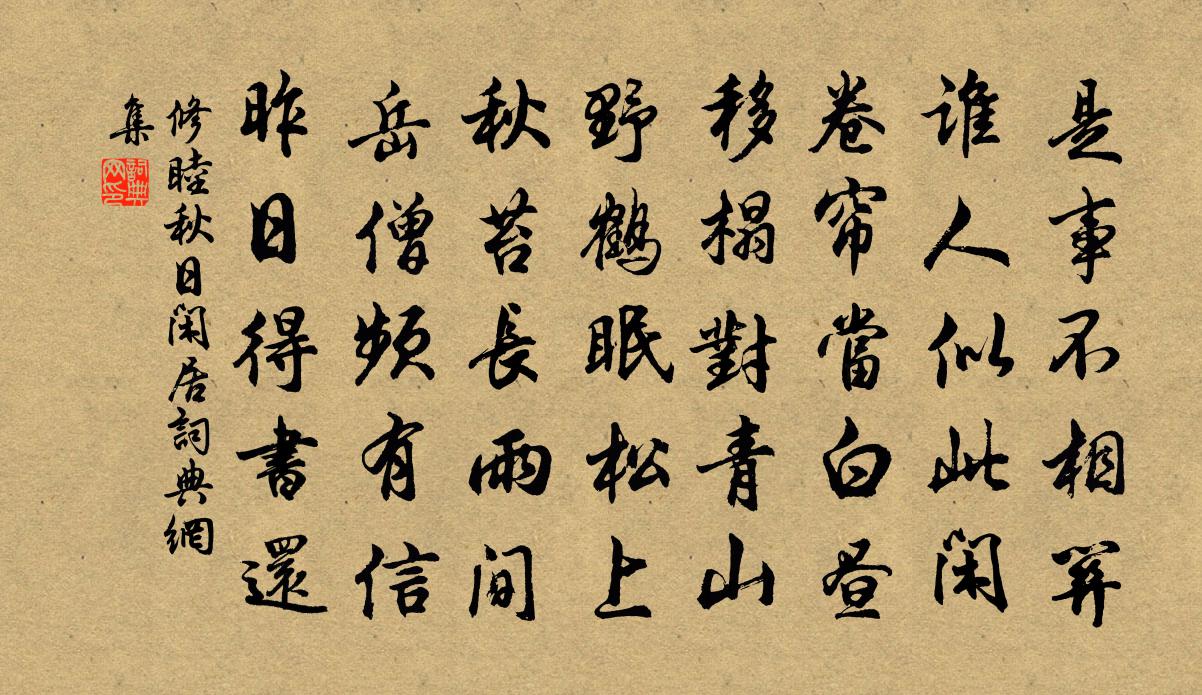 是事不相關
誰人似此閑
卷帘當白晝
移榻對青山
野鶴眠松上
秋苔長雨間
岳僧頻有信
昨日得書還
修睦秋日閑居詞典網
集
詞典
网印